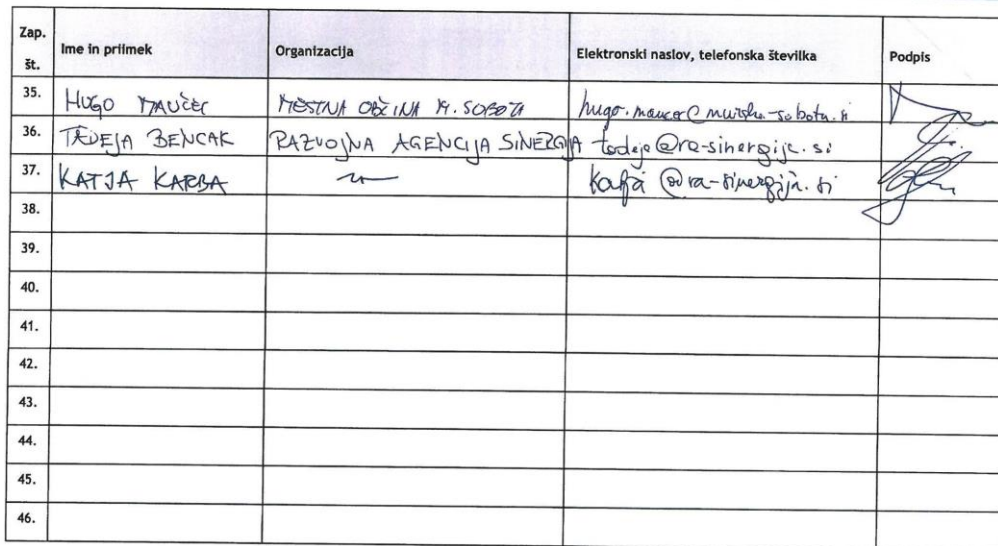 Zap. št. Ime in priimek Organizacija Elektronski naslov, telefonska številka Podpis
35. HUGO MAUČEC MESTNA OBČINA M. SOBOTA hugo.maucec@murska-sobota.si
36. TADEJA BENCAK RAZVOJNA AGENCIJA SINERGIJA tadeja@ra-sinergija.si
37. KATJA KARBA —〃— katja@ra-sinergija.si
38.
39.
40.
41.
42.
43.
44.
45.
46.